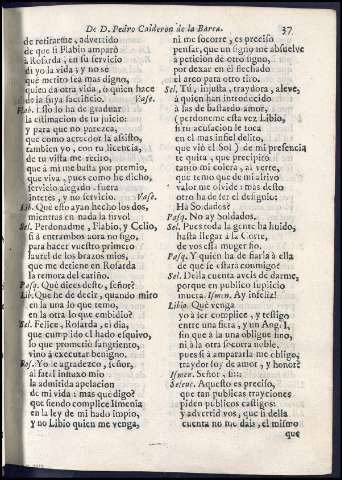 De D. Pedro Calderon de la Barca. 37
de retirarme, advertido
de que si Flabio amparò
à Rosarda, en su servicio
di yo la vida; y no sè
que merito sea mas digno,
quien dà otra vida, ò quien hace
de la suya sacrificio. Vase.
Flab. Esso lo ha de graduar
la estimacion de tu juicio:
y para que no parezca,
que como acreedor la assisto,
tambien yo, con tu licencia,
de tu vista me retiro,
que à mi me basta por premio,
que viva, pues como he dicho,
servicio alegado, fuera
interès, y no servicio. Vase.
Lib. Que esto ayan hecho los dos,
mientras en nada la sirvo!
Sel. Perdonadme, Flabio, y Celio,
si à entrambos aora no sigo,
para hacer vuestro primero
laurel de los brazos mios,
que me detiene en Rosarda
la remora del cariño.
Pasq. Què dices desto, señor?
Lib. Que he de decir, quando miro
en la una lo que temo,
en la otra lo que embidio?
Sel. Felice, Rosarda, el dia,
que cumplido el hado esquivo,
lo que prometiò sangriento,
vino à executar benigno.
Ros. Yo le agradezco, señor,
al fatal influxo mio
la admitida apelacion
de mi vida: mas què digo?
que siendo complice Ismenia
en la ley de mi hado impio,
y no Libio quien me venga,
ni me socorre, es preciso
pensar, que un signo me absuelve
à peticion de otro signo,
por dexar en el flechado
el arco para otro tiro.
Sel. Tù, injusta, traydora, aleve,
à quien han introducido
à ser de bastardo amor,
(perdoneme esta vez Libio,
si tu acusacion le toca
en el mas infiel delito,
que viò el Sol) de mi presencia
te quita, que precipito
tanto mi colera, al verte,
que temo que de mi altivo
valor me olvide: mas desto
otro ha de ser el designio:
Ha Soldados?
Pasq. No ay Soldados.
Sel. Pues toda la gente ha huido,
hasta llegar à la Corte,
de vos essa muger fio.
Pasq. Y quien ha de fiarla à ella
de que se estarà conmigo?
Sel. Della cuenta aveis de darme,
porque en publico suplicio
muera. Ismen. Ay infeliz!
Libio. Què venga
yo à ser complice, y testigo
entre una fiera, y un Angel,
sin que à la una obligue fino,
ni à la otra socorra noble,
pues si à ampararla me obligo,
traydor soy de amor, y honor?
Ismen. Señor, si::
Seleuc. Aquesto es preciso,
que tan publicas trayciones
piden publicos castigos:
y advertid vos, que si della
cuenta no me dais, el mismo
que